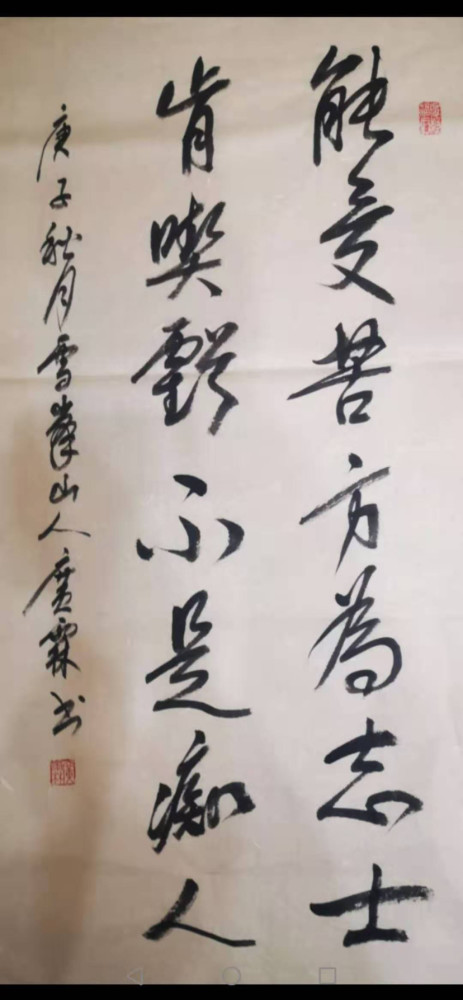 能受苦方為志士
肯喫虧不是痴人
庚子秋月雪峯山人廣霖书